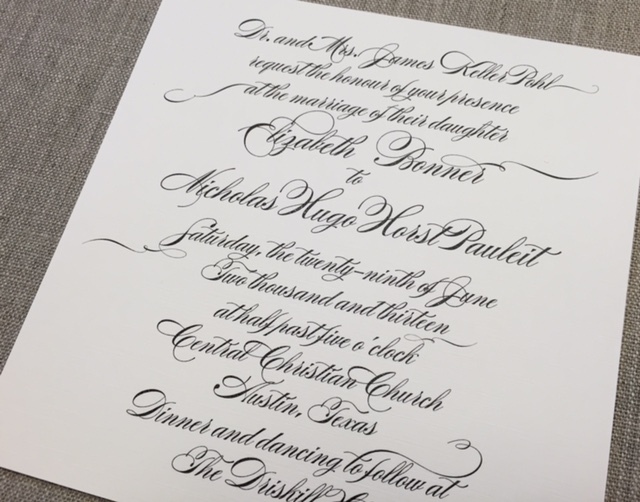 Dr. and Mrs. James Keller Pohl
request the honour of your presence
at the marriage of their daughter
Elizabeth Bonner
to
Nicholas Hugo Horst Pauleit
Saturday, the twenty-ninth of June
Two thousand and thirteen
at half past five o'clock
Central Christian Church
Austin, Texas
Dinner and dancing to follow at
The Driskill